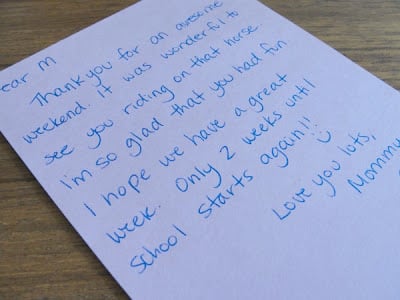 ear M
Thank you for an awesome
weekend. It was wonderful to
see you riding on that horse.
I'm so glad that you had fun
I hope we have a great
week. Only 2 weeks until
school starts again!!
Love you lots,
Mommy